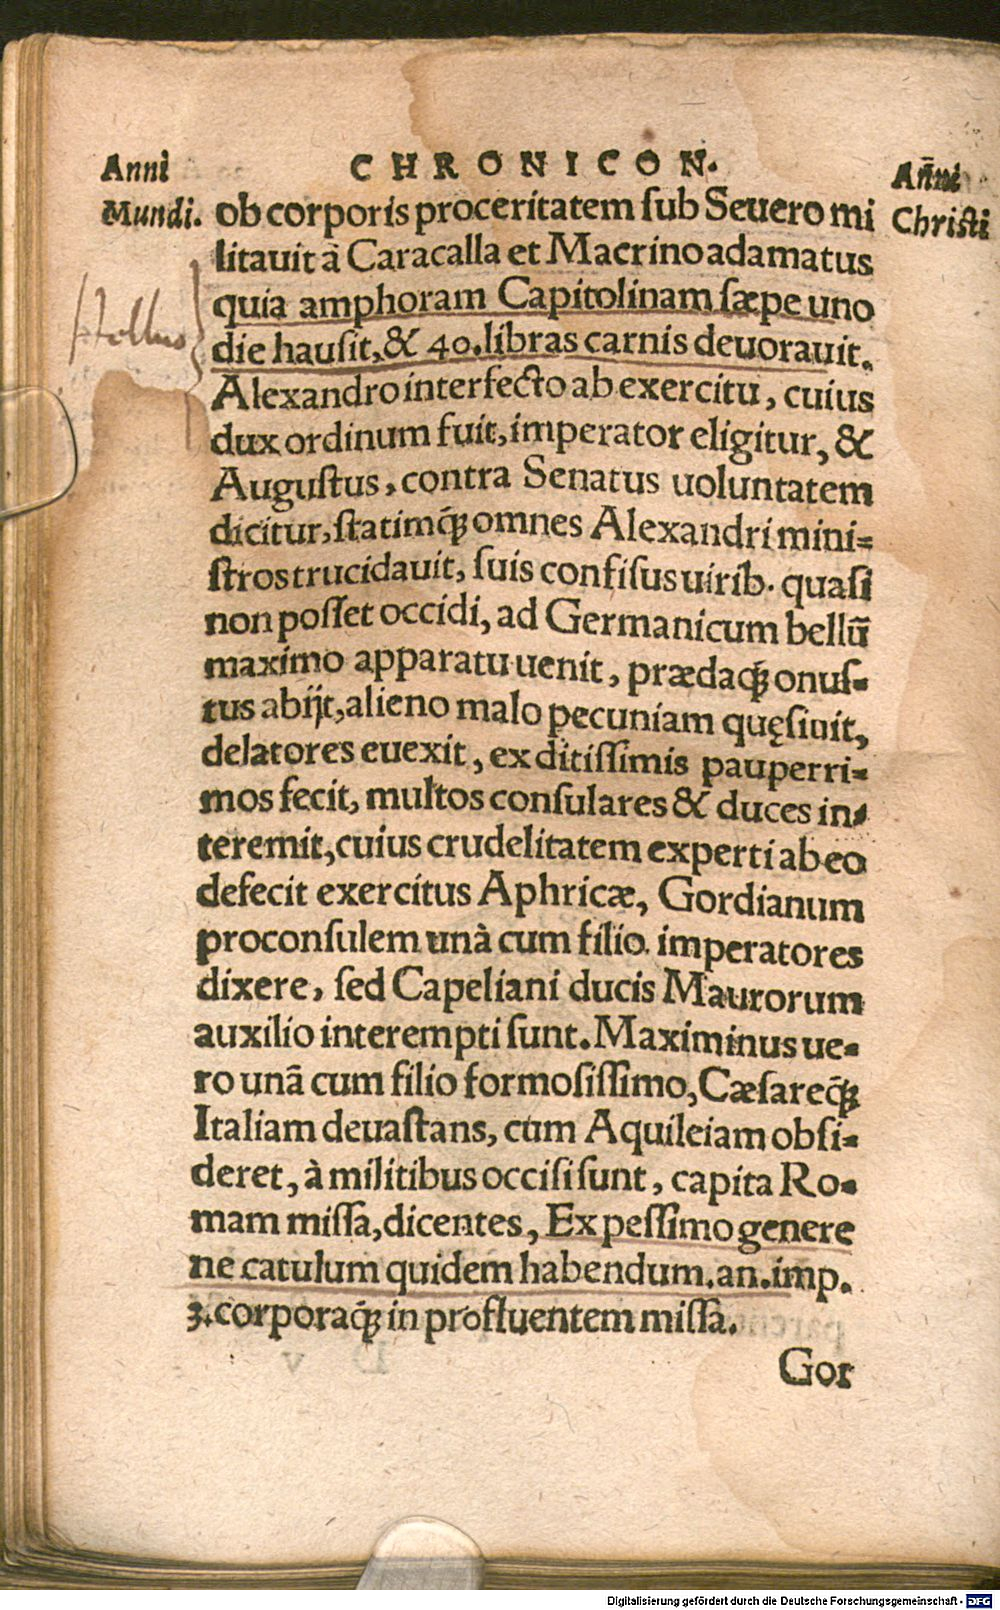 Anni
Mundi.
CHRONICON.
Añni
Christi
ob corporis proceritatem ſub Seuero mi
litauit à Caracalla et Macrino adamatus
quia amphoram Capitolinam ſæpe uno
die hauſit, & 40. libras carnis deuorauit.
Alexandro interfecto ab exercitu, cuius
dux ordinum fuit, imperator eligitur, &
Auguſtus, contra Senatus uoluntatem
dicitur, ſtatimq́ꝫ omnes Alexandri mini=
ſtros trucidauit, ſuis confiſus uirib. quaſi
non poſſet occidi, ad Germanicum bellũ
maximo apparatu uenit, prædaq́ꝫ onuſ=
tus abijt, alieno malo pecuniam quęſiuit,
delatores euexit, ex ditiſſimis pauperri=
mos fecit, multos conſulares & duces in=
teremit, cuius crudelitatem experti ab eo
defecit exercitus Aphricæ, Gordianum
proconſulem unà cum filio imperatores
dixere, ſed Capeliani ducis Maurorum
auxilio interempti ſunt. Maximinus ue=
ro unã cum filio formoſiſſimo, Cæſareq́ꝫ
Italiam deuaſtans, cum Aquileiam obſi=
deret, à militibus occiſi ſunt, capita Ro=
mam miſſa, dicentes, Ex peſſimo genere
ne catulum quidem habendum. an. imp.
3. corporaq́ꝫ in profluentem miſſa.
Gor
Digitalisierung gefördert durch die Deutsche Forschungsgemeinschaft - DFG